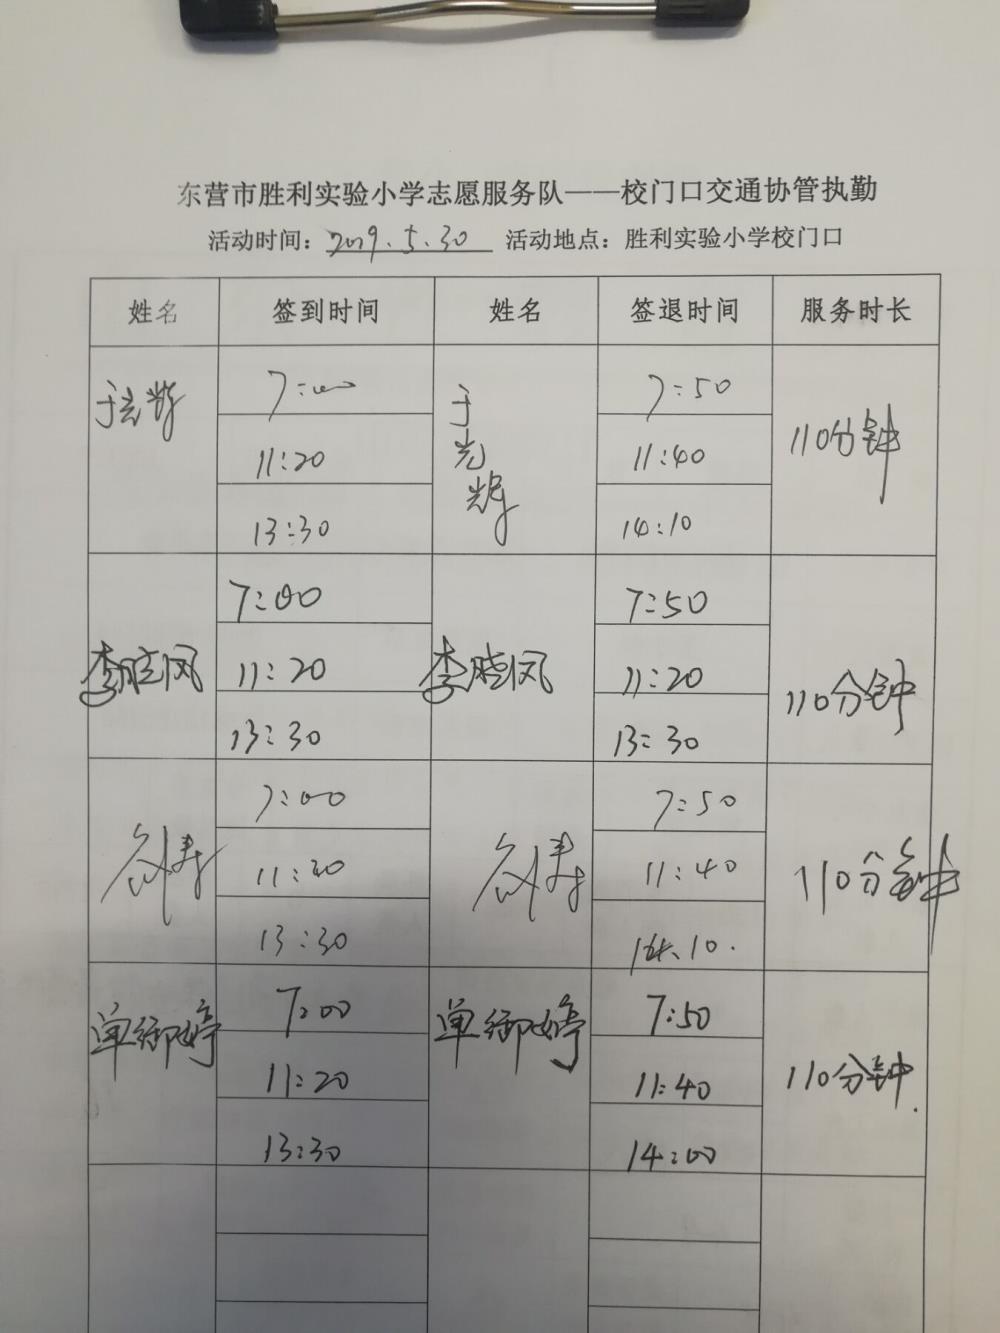 东营市胜利实验小学志愿服务队——校门口交通协管执勤
活动时间：2019.5.30 活动地点：胜利实验小学校门口
姓名 签到时间 姓名 签退时间 服务时长
于光辉 7:00 于光辉 7:50 110分钟
11:20 11:40
13:30 14:10
李晓凤 7:00 李晓凤 7:50 110分钟
11:20 11:20
13:30 13:30
7:00 7:50 110分钟
11:20 11:40
13:30 14.10.
单御婷 7:00 单御婷 7:50 110分钟.
11:20 11:40
13:30 14:00